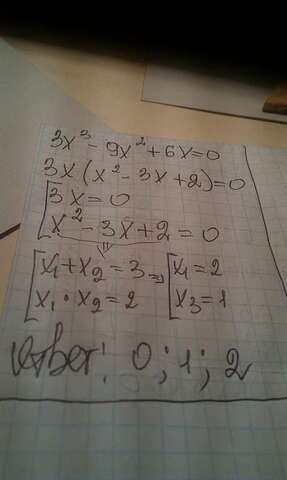 3x³ - 9x² + 6x = 0
3x (x² - 3x + 2) = 0
[3x = 0
[x² - 3x + 2 = 0
⇓
[x₁ + x₂ = 3 ⇒ [x₁ = 2
[x₁ · x₂ = 2 [x₃ = 1
Ответ: 0; 1; 2